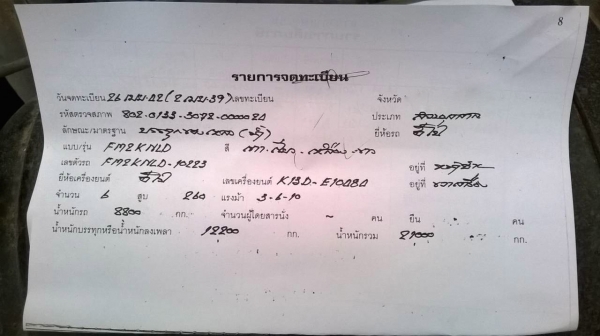 8
รายการจดทะเบียน
วันจดทะเบียน 26 เม.ย. 42 (2 เม.ย. 39) เลขทะเบียน จังหวัด
รหัสตรวจสภาพ 802-0133-3072-0000020 ประเภท ส่วนบุคคล
ลักษณะ/มาตรฐาน บรรทุก ยี่ห้อรถ ฮีโน่
แบบ/รุ่น FM2KNLD สี เทา-เขียว-เหลือง-ขาว
เลขตัวรถ FM2KNLD-10223 อยู่ที่
ยี่ห้อเครื่องยนต์ ฮีโน่ เลขเครื่องยนต์ K13D-E10080 อยู่ที่ ขวาเครื่อง
จำนวน 6 สูบ 260 แรงม้า 3-6-10
น้ำหนักรถ 8800 กก. จำนวนผู้โดยสารนั่ง ~ คน ยืน คน
น้ำหนักบรรทุกหรือน้ำหนักลงเพลา 12200 กก. น้ำหนักรวม 21000 กก.